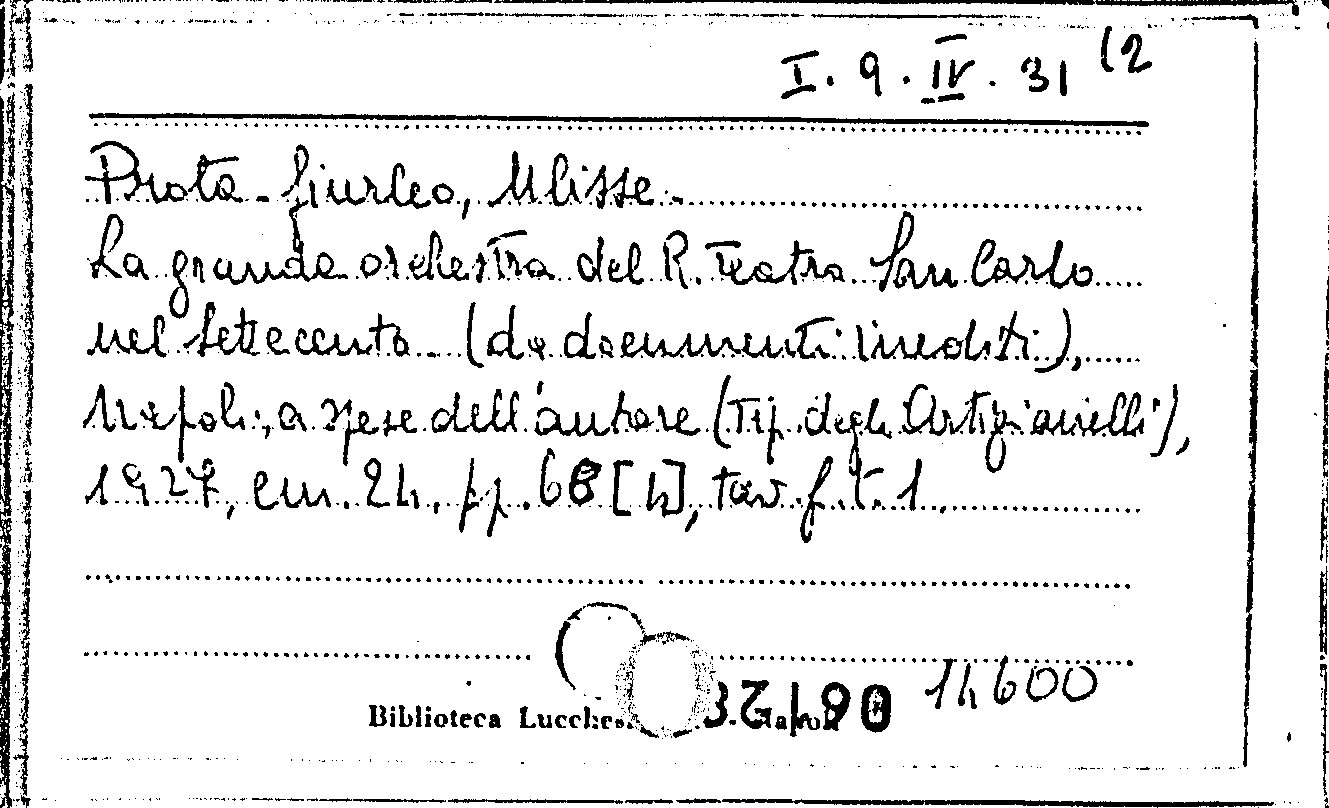 I. 9. IV. 31 (2
Prota-Giurleo, Ulisse.
La grande orchestra del R. Teatro San Carlo
nel Settecento (da documenti inediti),
Napoli, a spese dell'autore (Tip. degli Artigianelli),
1927, cm. 24. pp. 68 [4], tav. f. t. 1.
14600
Biblioteca Lucches